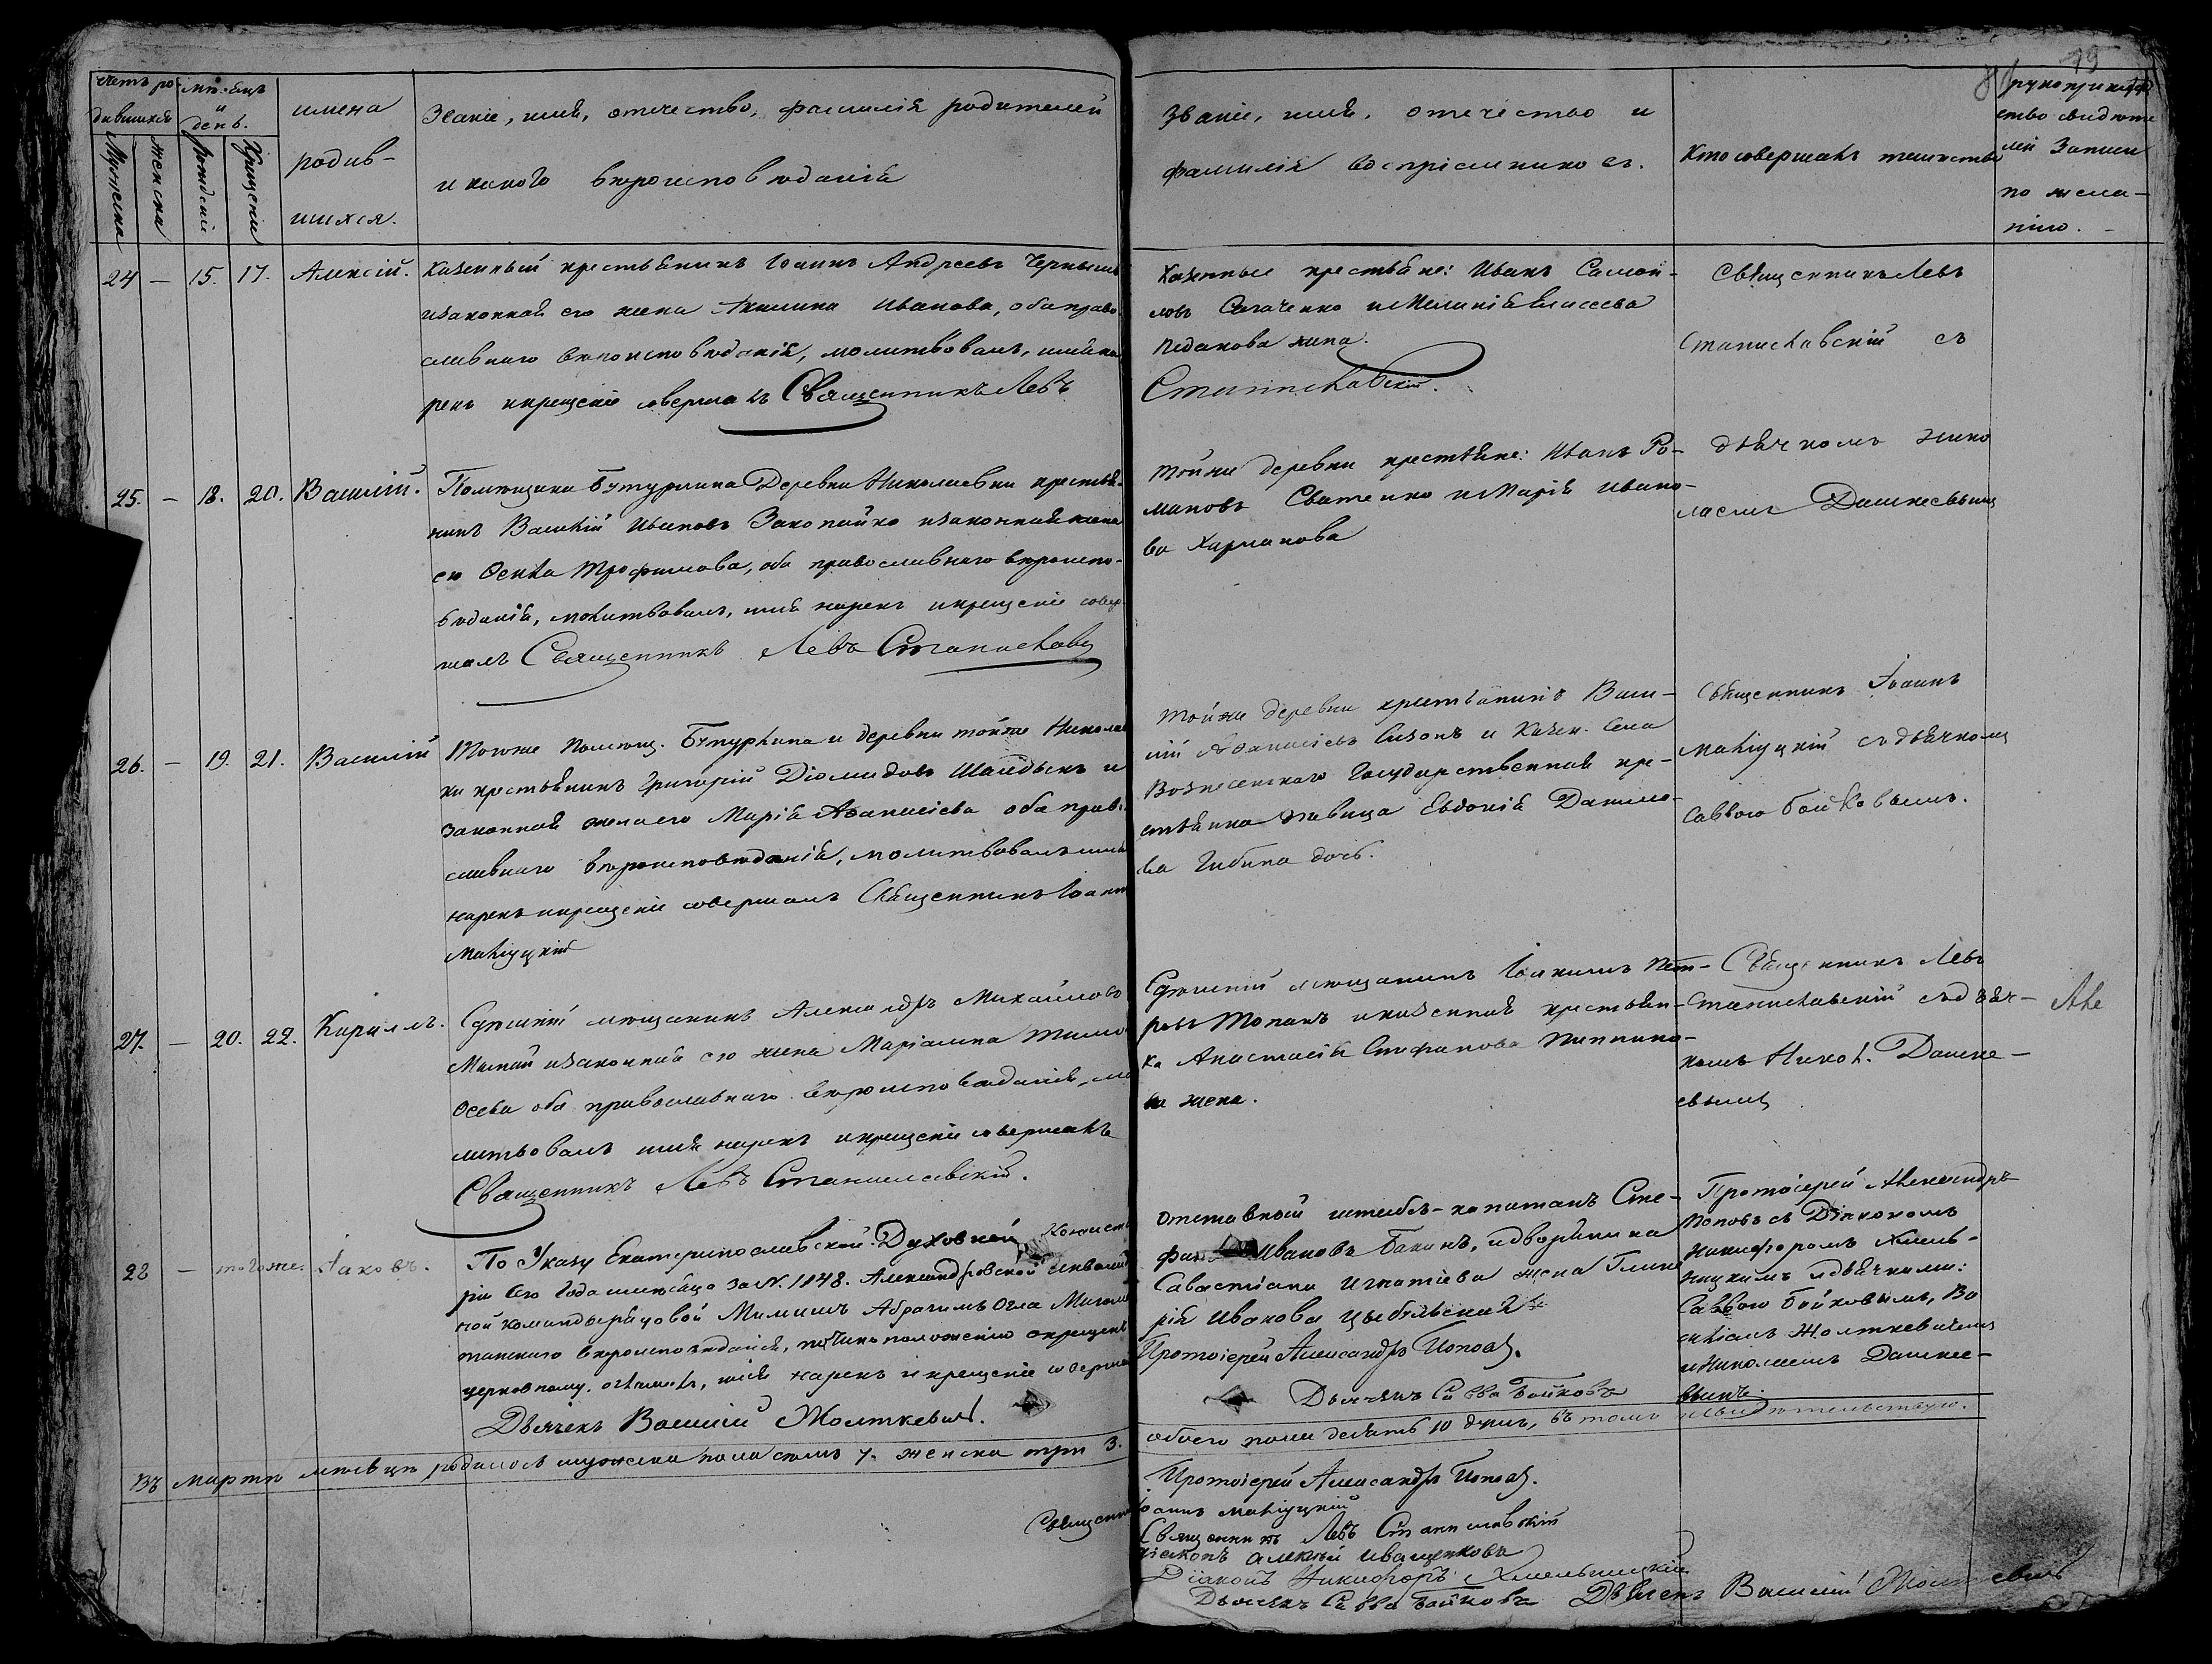 Счетъ ро-
дившихся
мѣсяцъ
и
день.
Мужеска
Женска
Рожденія
Крещенія
имена
родив-
шихся.
Званіе, имя, отчество, фамилія родителей
и какого вѣроисповѣданія
Званіе, имя, отчество и
фамилія воспріемниковъ.
Кто совершалъ таинство
рукоприклад
ство свидѣте
лей Записи
по жела-
нію.
79
24 — 15. 17. Алексій. Казенный крестьянинъ Іоаннъ Андреевъ
изаконная его жена Акилина Иванова, оба право
славнаго вѣроисповѣданія, молитвовалъ, имя на
рекъ икрещеніе совершалъ Священникъ Левъ
Казенные крестьяне: Иванъ Самой-
ловъ и Меланія Елисеева
жена.
Станиславскій.
Священникъ Левъ
Станиславскій съ
дьячкомъ Нико
лаемъ
25. — 18. 20. Василій. Помѣщика Бутурлина Деревни Николаевки крестья-
нинъ Василій Ивановъ Закопайко изаконная жена
его Трофимова, оба православнаго вѣроиспо-
вѣданія, молитвовалъ, имя нарекъ икрещеніе совер
шалъ Священникъ Левъ Станиславск
Тойже деревни крестьяне: Иванъ Ро-
мановъ Сватенко и Марія Ивано-
ва Харманова
26. — 19. 21. Василій Тогоже помѣщ. Бутурлина и деревни тойже Николаев
ки крестьянинъ Григорій Діомидовъ и
законная жена его Марія Аѳанасіева оба право
славнаго вѣроисповѣданія, молитвовалъ имя
нарекъ икрещеніе совершалъ Священникъ Іоаннъ
Маліуцкій
Тойже деревни крестьянинъ Васи-
лій Аѳанасіевъ Сизонъ и Казен. Села
Вознесенскаго Государственная кре-
стьянка дѣвица Евдокія Данило-
ва Гибина дочь.
Священникъ Іоаннъ
Маліуцкій съ дьячкомъ
Саввою Бойковымъ.
27. — 20. 22. Кириллъ. мѣщанинъ Александръ Михайловъ
изаконная его жена Маріамна Тимо
ѳеева оба православнаго вѣроисповѣданія, мо
литвовалъ имя нарекъ икрещеніе совершалъ
Священникъ Левъ Станиславскій.
мѣщанинъ Іоакимъ Пет-
ровъ Топанъ и казенная крестьян-
ка Анастасія Стефанова
ва жена.
Священникъ Левъ
Станиславскій съ дьяч-
комъ Никол.
евымъ
Але
28 — тогоже. Іаковъ. По Указу Екатеринославской Духовной Консисто
ріи сего Года мѣсяца за N. 1848. Александровской инвалид
ной команды рядовой Абрагимъ Оглы Магоме
танскаго вѣроисповѣданія, по чиноположенію
церковному, имя нарекъ и крещеніе соверша
Дьячекъ Василій Жолткевичъ.
Отставной штабсъ-капитанъ Сте-
фанъ Ивановъ Баканъ, идворянина
Савастіана Игнатіева жена Глике
рія Иванова Цыбульская
Протоіерей Александръ Поповъ.
Дьячекъ Савва Бойковъ
Протоіерей Александръ
Поповъ съ Діакономъ
Никифоромъ Хмель-
ницкимъ и дьячками:
Саввою Бойковымъ, Ва
силіемъ Жолткевичемъ
и Николаемъ
вымъ.
Въ Мартѣ мѣсяцѣ родилось мужеска пола семь 7. женска три 3.
обоего пола десять 10 душъ, въ томъ и свидѣтельствую.
Протоіерей Александръ Поповъ.
Священникъ Іоаннъ Маліуцкій
Священникъ Левъ Станиславскій
Діаконъ Алексѣй Иващенковъ
Діаконъ Никифоръ Хмельницкій
Дьячекъ Савва Бойковъ Дьячекъ Василій Жолткевичъ